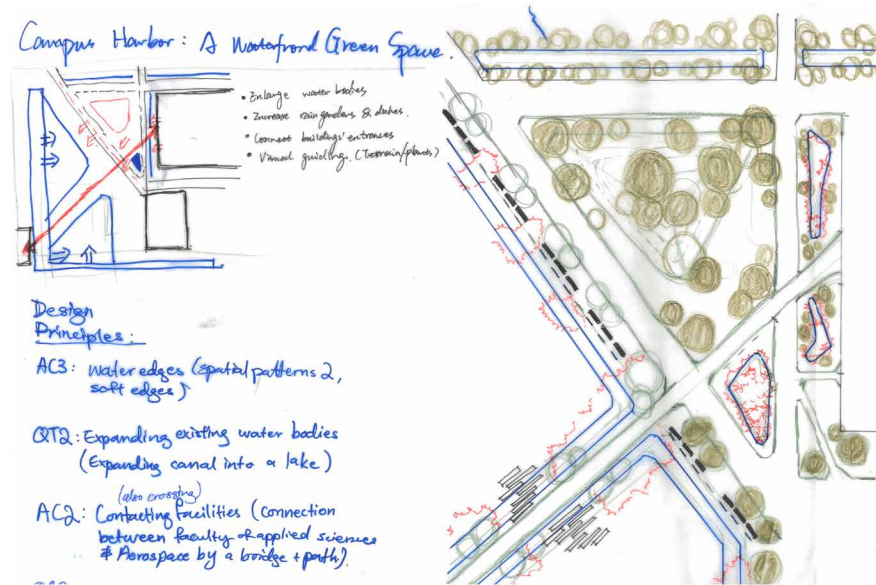 Campus Harbor: A Waterfrond Green Space.
• Enlarge water bodies
• Increase rain gardens & ditches
• Connect buildings' entrances
• Visual guiding. (Terrain/plants)
Design
Principles:
AC3: Water edges (spatial patterns 2,
soft edges)
QT2: Expanding existing water bodies
(Expanding canal into a lake)
(also crossing)
AC2: Contacting facilities (connection
between faculty of applied sciences
& Aerospace by a bridge + path).